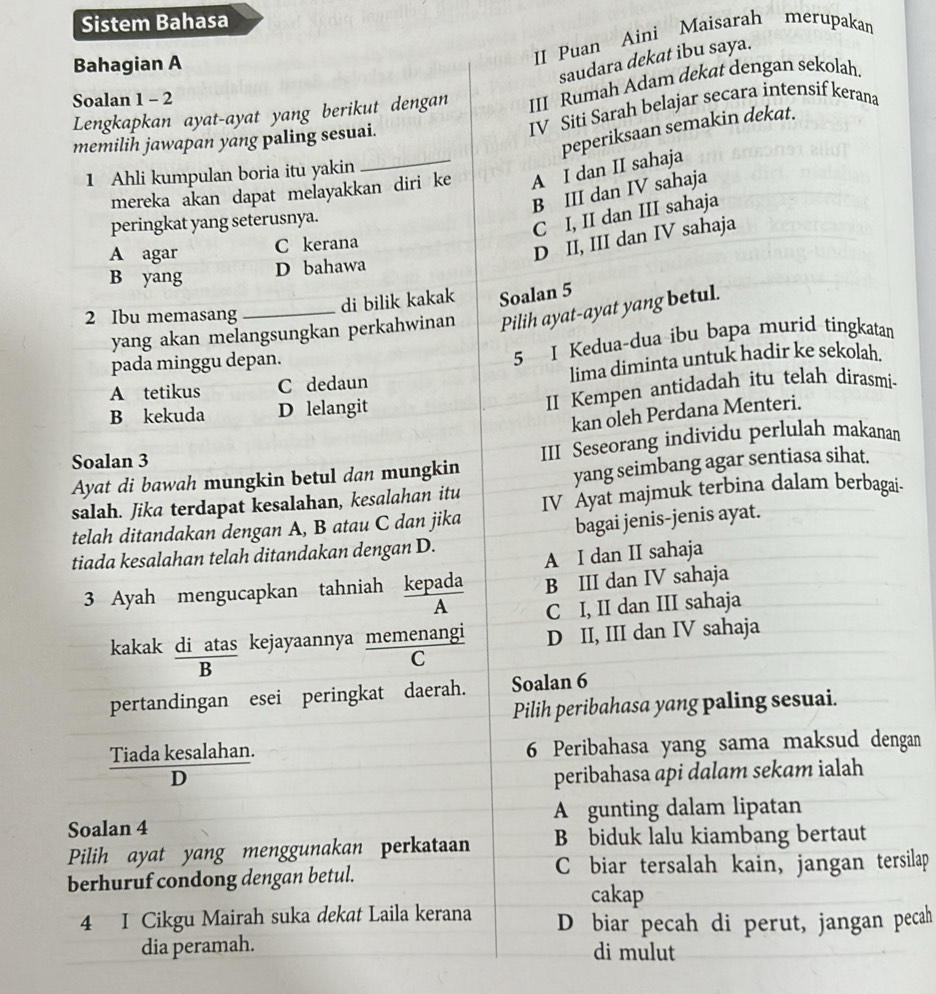 Sistem Bahasa
Bahagian A
Soalan 1 – 2
Lengkapkan ayat-ayat yang berikut dengan
memilih jawapan yang paling sesuai.
1 Ahli kumpulan boria itu yakin ________
mereka akan dapat melayakkan diri ke
peringkat yang seterusnya.
A agar C kerana
B yang D bahawa
2 Ibu memasang ________ di bilik kakak
yang akan melangsungkan perkahwinan
pada minggu depan.
A tetikus C dedaun
B kekuda D lelangit
Soalan 3
Ayat di bawah mungkin betul dan mungkin
salah. Jika terdapat kesalahan, kesalahan itu
telah ditandakan dengan A, B atau C dan jika
tiada kesalahan telah ditandakan dengan D.
3 Ayah mengucapkan tahniah kepada
A
kakak di atas kejayaannya memenangi
B C
pertandingan esei peringkat daerah.
Tiada kesalahan.
D
Soalan 4
Pilih ayat yang menggunakan perkataan
berhuruf condong dengan betul.
4 I Cikgu Mairah suka dekat Laila kerana
dia peramah.
II Puan Aini Maisarah merupakan
saudara dekat ibu saya.
III Rumah Adam dekat dengan sekolah.
IV Siti Sarah belajar secara intensif kerana
peperiksaan semakin dekat.
A I dan II sahaja
B III dan IV sahaja
C I, II dan III sahaja
D II, III dan IV sahaja
Soalan 5
Pilih ayat-ayat yang betul.
5 I Kedua-dua ibu bapa murid tingkatan
lima diminta untuk hadir ke sekolah.
II Kempen antidadah itu telah dirasmi-
kan oleh Perdana Menteri.
III Seseorang individu perlulah makanan
yang seimbang agar sentiasa sihat.
IV Ayat majmuk terbina dalam berbagai-
bagai jenis-jenis ayat.
A I dan II sahaja
B III dan IV sahaja
C I, II dan III sahaja
D II, III dan IV sahaja
Soalan 6
Pilih peribahasa yang paling sesuai.
6 Peribahasa yang sama maksud dengan
peribahasa api dalam sekam ialah
A gunting dalam lipatan
B biduk lalu kiambang bertaut
C biar tersalah kain, jangan tersilap
cakap
D biar pecah di perut, jangan pecah
di mulut